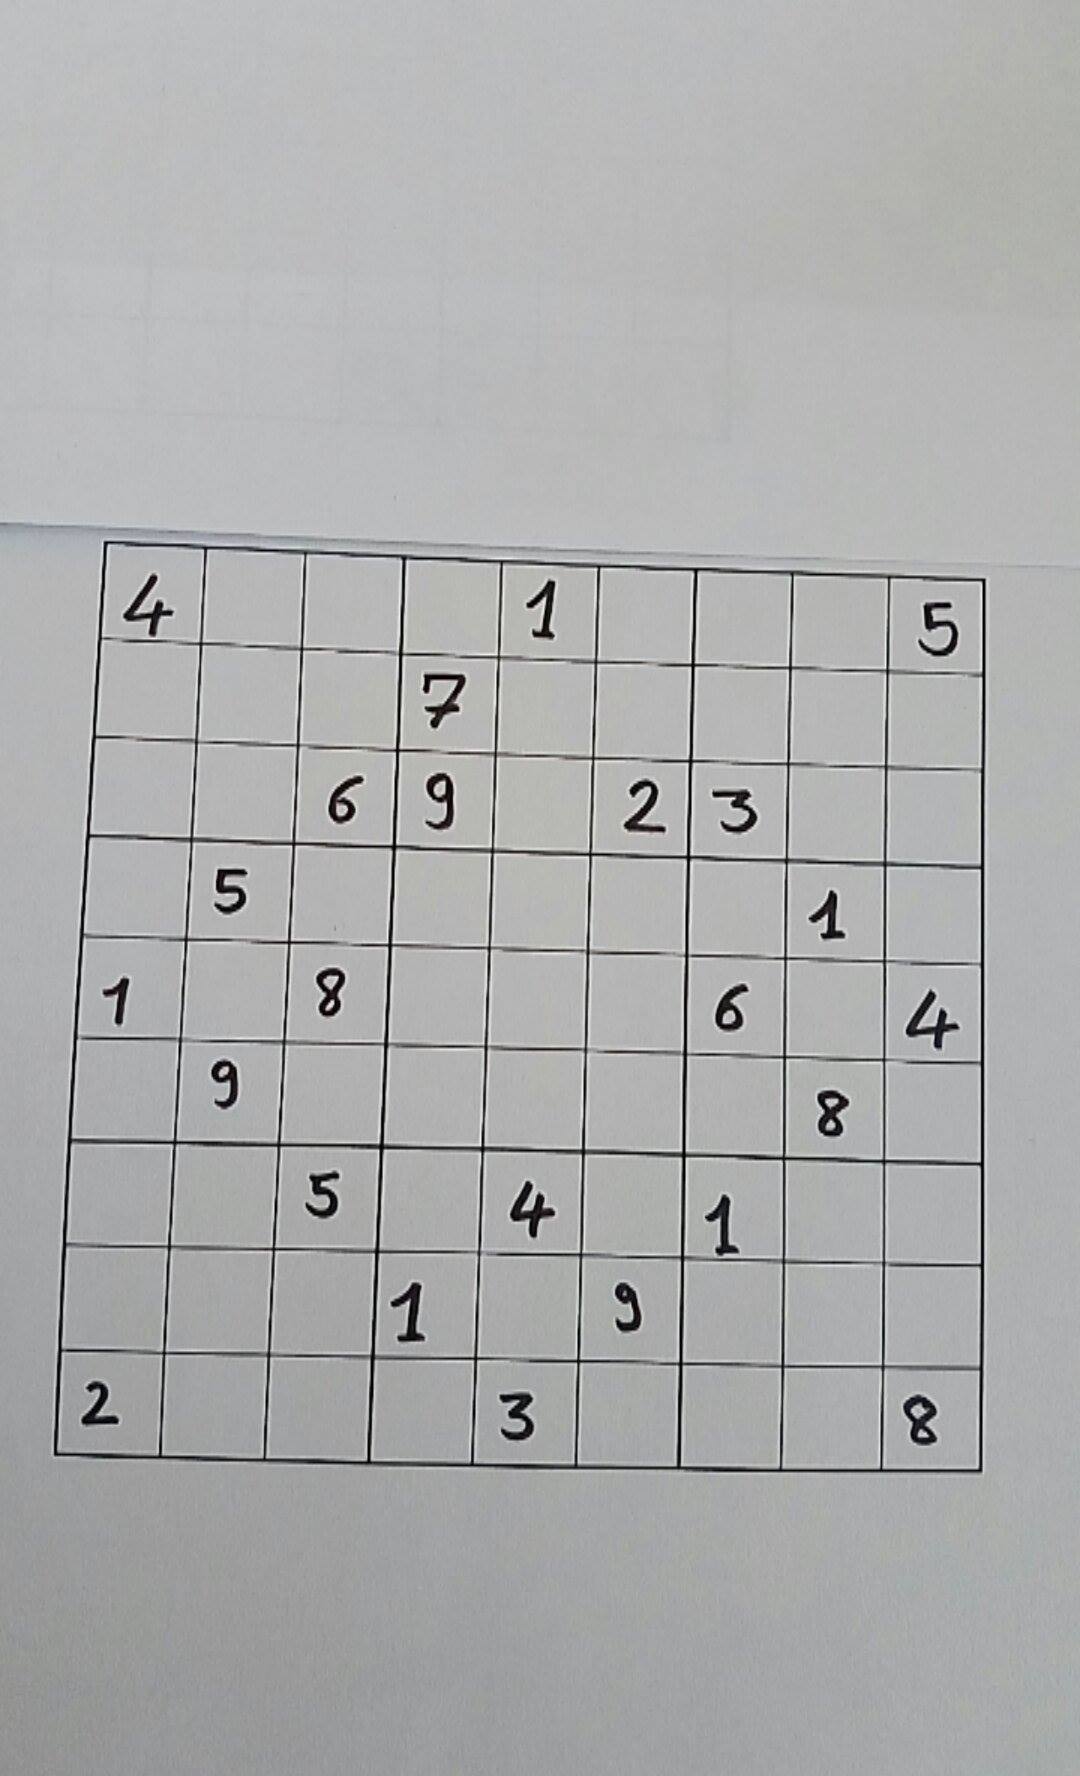 4 1 5
7
6 9 2 3
5 1
1 8 6 4
9 8
5 4 1
1 9
2 3 8